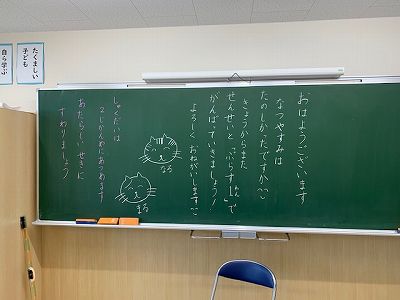 おはようございます
なつやすみは
たのしかったですか?
きょうからまた
がんばっていきましょう!
よろしくおねがいします
なろ
まろ
しゅくだいは
2じかんめにあつめます
あたらしいせきに
すわりましょう
たくましい
子ども
自ら学ぶ